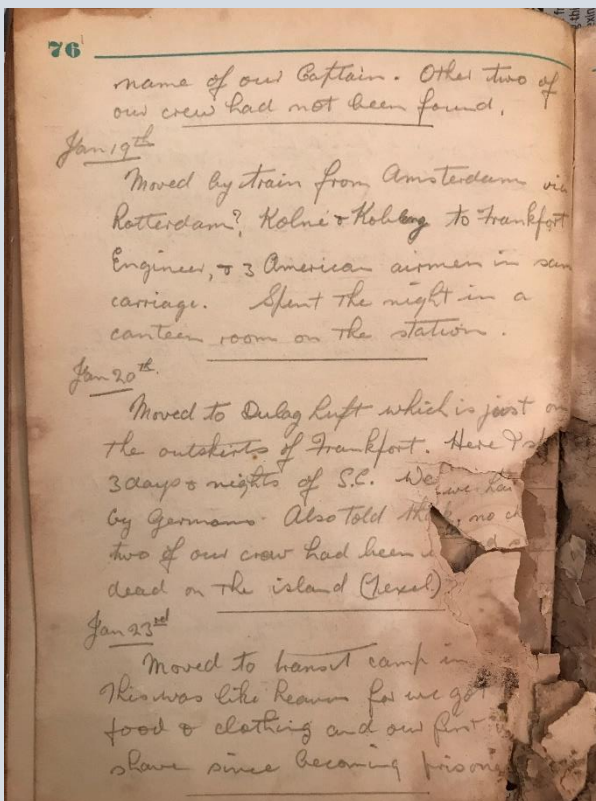 76
name of our Captain. Other two of
our crew had not been found.
Jan 19th
Moved by train from Amsterdam via
Rotterdam?, Kolne & to Frankfort
Engineer, & 3 American airmen in
carriage. Spent the night in a
canteen room on the station.
Jan 20th.
Moved to Dulag Luft which is just
the outskirts of Frankfort. Here I
3 days & nights of S.C. We
by Germans. Also told no
two of our crew had been
dead on the island (Texel)
Jan 23rd
Moved to transit camp in
This was like heaven for we got
food & clothing and our first
shave since becoming